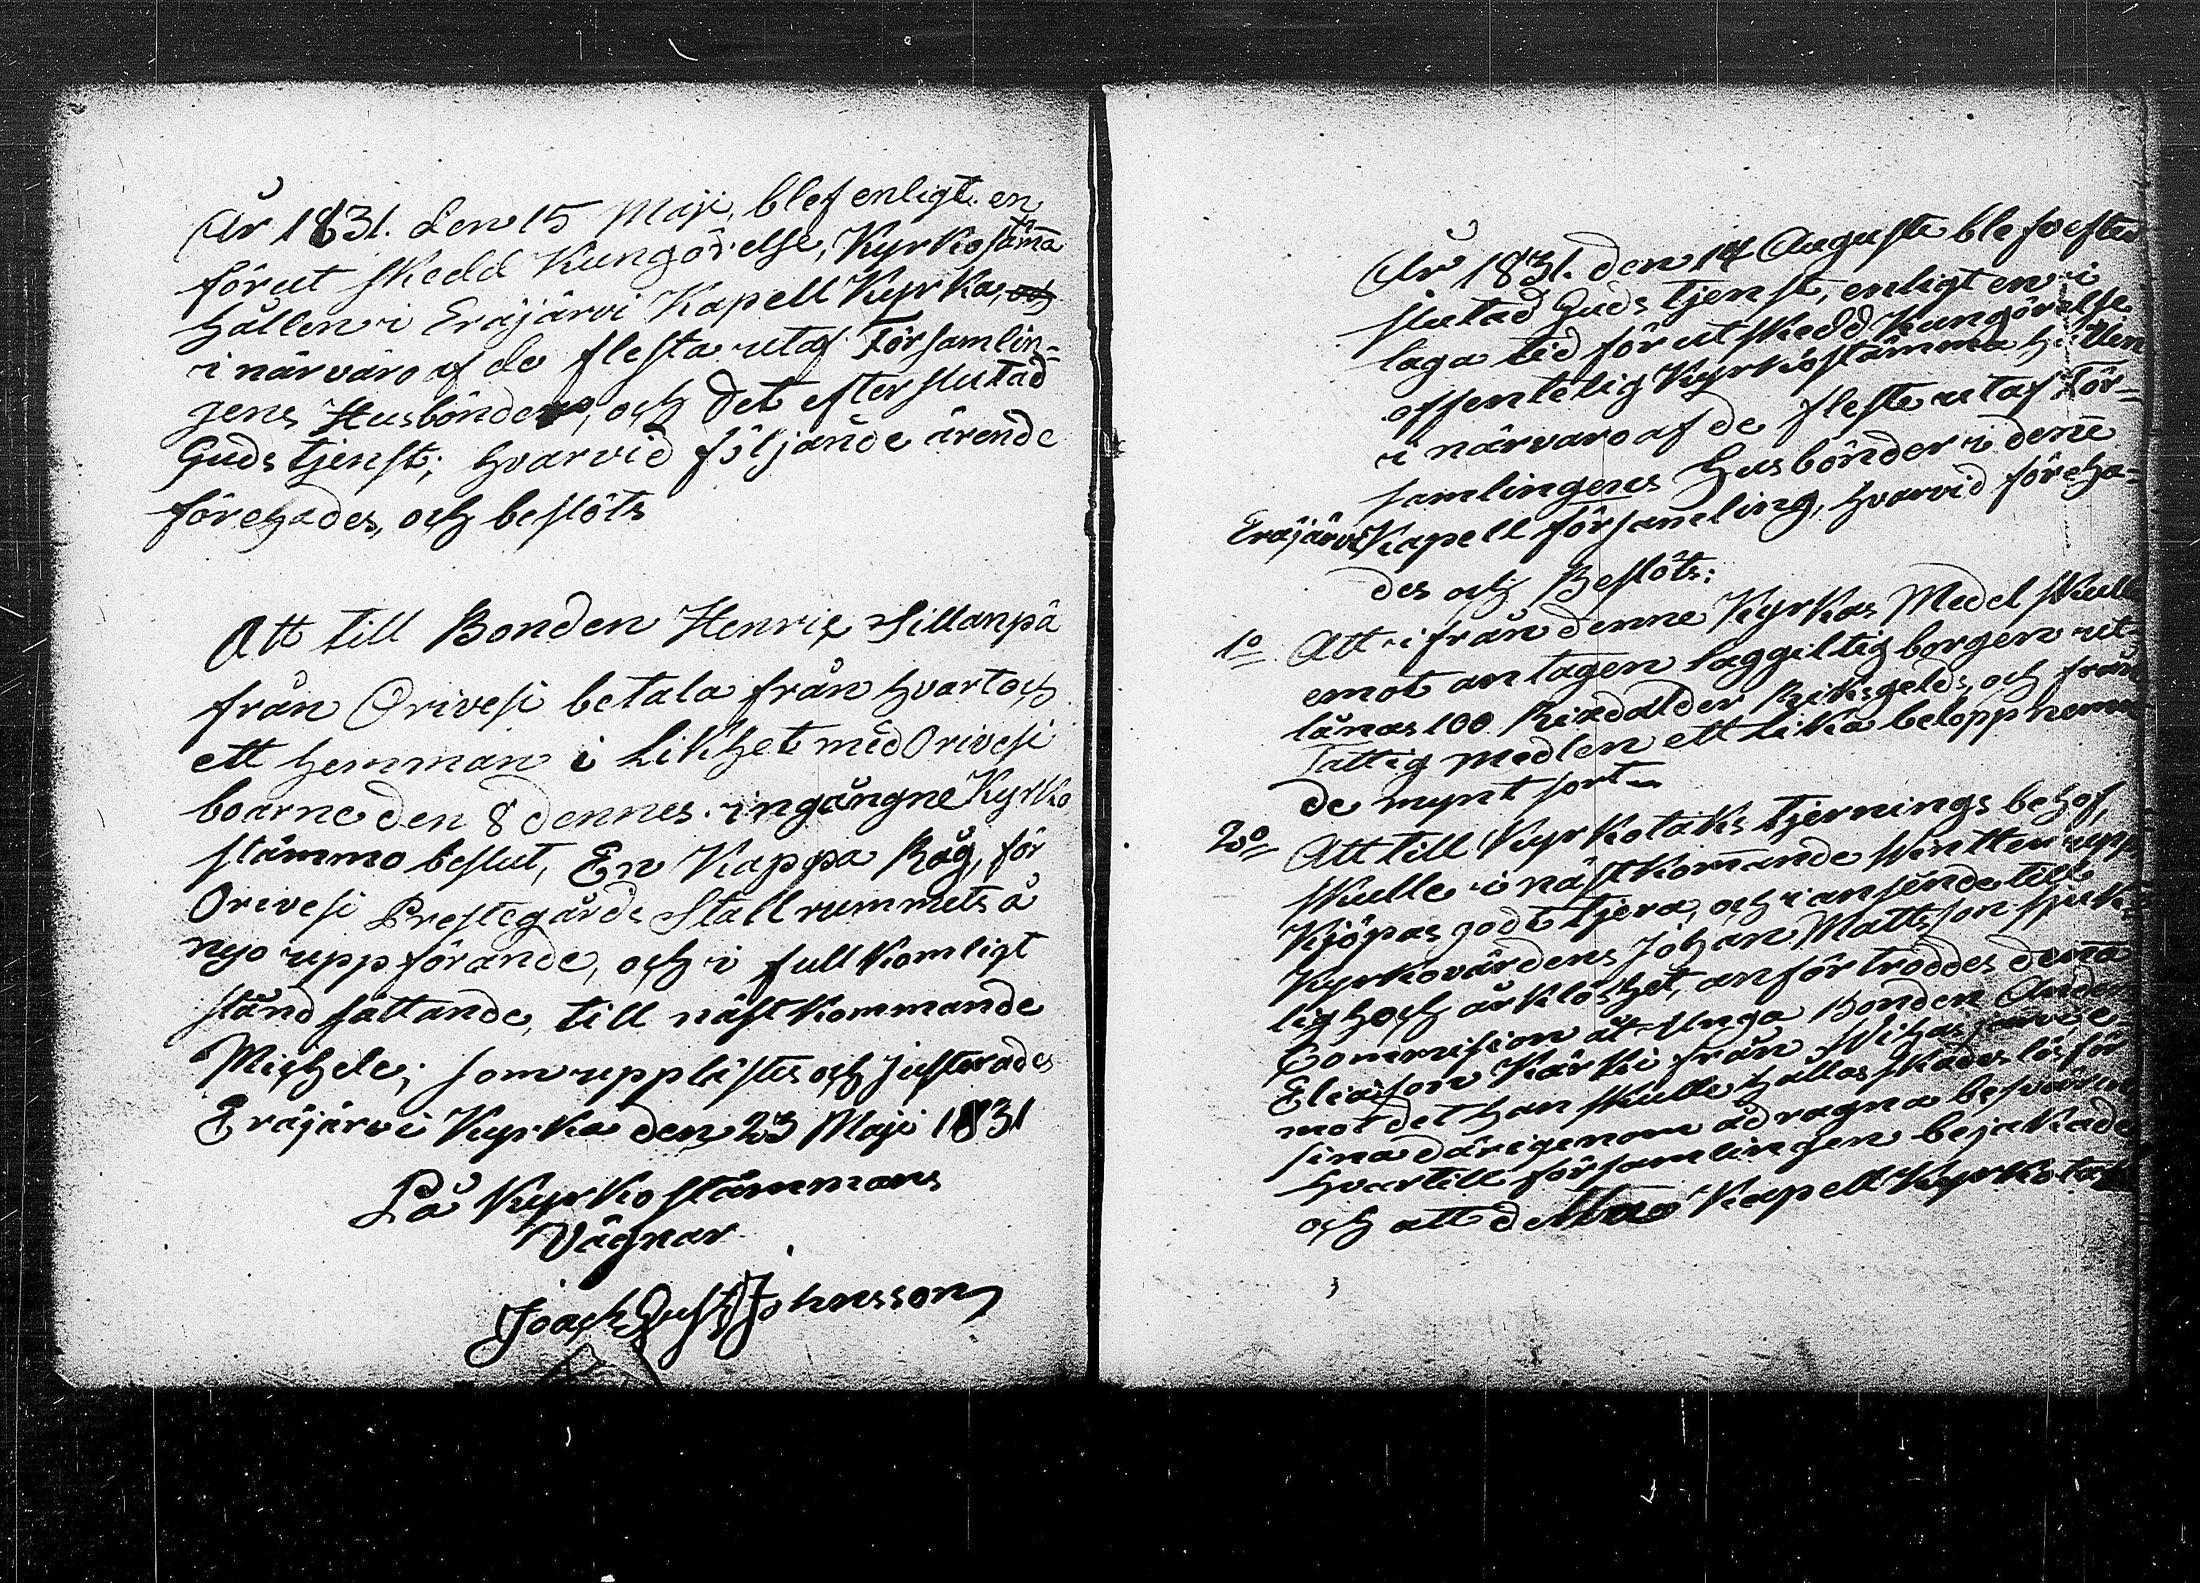 År 1831. den 15 Maji, blef enligt en
förut skedd Kungörelse, Kyrkostämma
hållen i Eräjärvi Kapell Kyrka, och
i närvaro af de flesta utaf Församlin-
gens Husbönder, och det efter slutad
Guds tjenst; hvarvid följande ärende
förehades, och beslöts
Att till Bonden Henric Sillanpä
från Orivesi betala från hvart och
ett hemman i Likhet med Orivesi
boarne den 8 dennes ingångne Kyrko
stämmo beslut, En Kappa Råg, för
Orivesi Prestegårds Stallrummets å
nyo uppförande, och i fullkomligt
stånd sättande, till nästkommande
Michele; som upplästes och justerades
Eräjärvi Kyrka den 23 Maji 1831
På Kyrkostämmans
Vägnar
Joach Gust Johnsson
År 1831. den 14 Augusti blef efter
slutad Guds tjenst, enligt en i
laga tid förut skedd Kungörelse
offentelig Kyrkostämma hållen
i närvaro af de fleste utaf För-
samlingens Husbönder i denne
Eräjärvi Kapell församling, hvarvid föreha-
des och Beslöts:
1o Att ifrån denne Kyrkas Medel skulle
emot antagen laggiltig borgen ut-
lånas 100 Riksdalder Riksgelds, och från
Fattig medlen ett lika belopp nemn
de mynt sort
2o Att till Kyrkotaks tjernings behof,
skulle i nästkommande Wintter upp
Kjöpas godt tjera, och i anseende till
Kyrkovärdens Johan Mattsson sjuk-
lighet och årklöshet, anförtroddes denna
Commision åt Unga Bonden Anders
Eliasson Kärki från Wihasjärvi e-
mot det han skulle hållas skadeslös för
sina därigenom ådragna besvär
hvartill församlingen bejakade
och att detta Kapell Kyrko tak